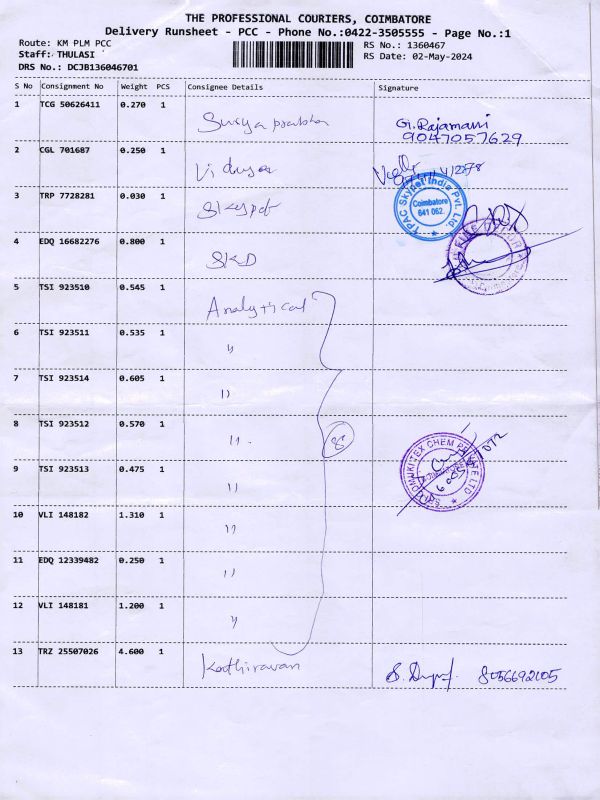 THE PROFESSIONAL COURIERS, COIMBATORE
Delivery Runsheet - PCC - Phone No.:0422-3505555 - Page No.:1
Route: KM PLM PCC
Staff: THULASI
DRS No.: DCJB136046701
RS No.: 1360467
RS Date: 02-May-2024
S No Consignment No Weight PCS Consignee Details Signature
1 TCG 50626411 0.270 1 Surya prabha G. Rajamani
9047057629
2 CGL 701687 0.250 1
3 TRP 7728281 0.030 1 Skypak
Skypak India Pvt. Ltd.
Coimbatore
641 062.
4 EDQ 16682276 0.800 1 SKD
5 TSI 923510 0.545 1 Analytical
6 TSI 923511 0.535 1 "
7 TSI 923514 0.605 1 "
8 TSI 923512 0.570 1 " 8
9 TSI 923513 0.475 1 "
CHEM PRIVATE LTD
10 VLI 148182 1.310 1 "
11 EDQ 12339482 0.250 1 "
12 VLI 148181 1.200 1 "
13 TRZ 25507026 4.600 1 Kathiravan 8056692105